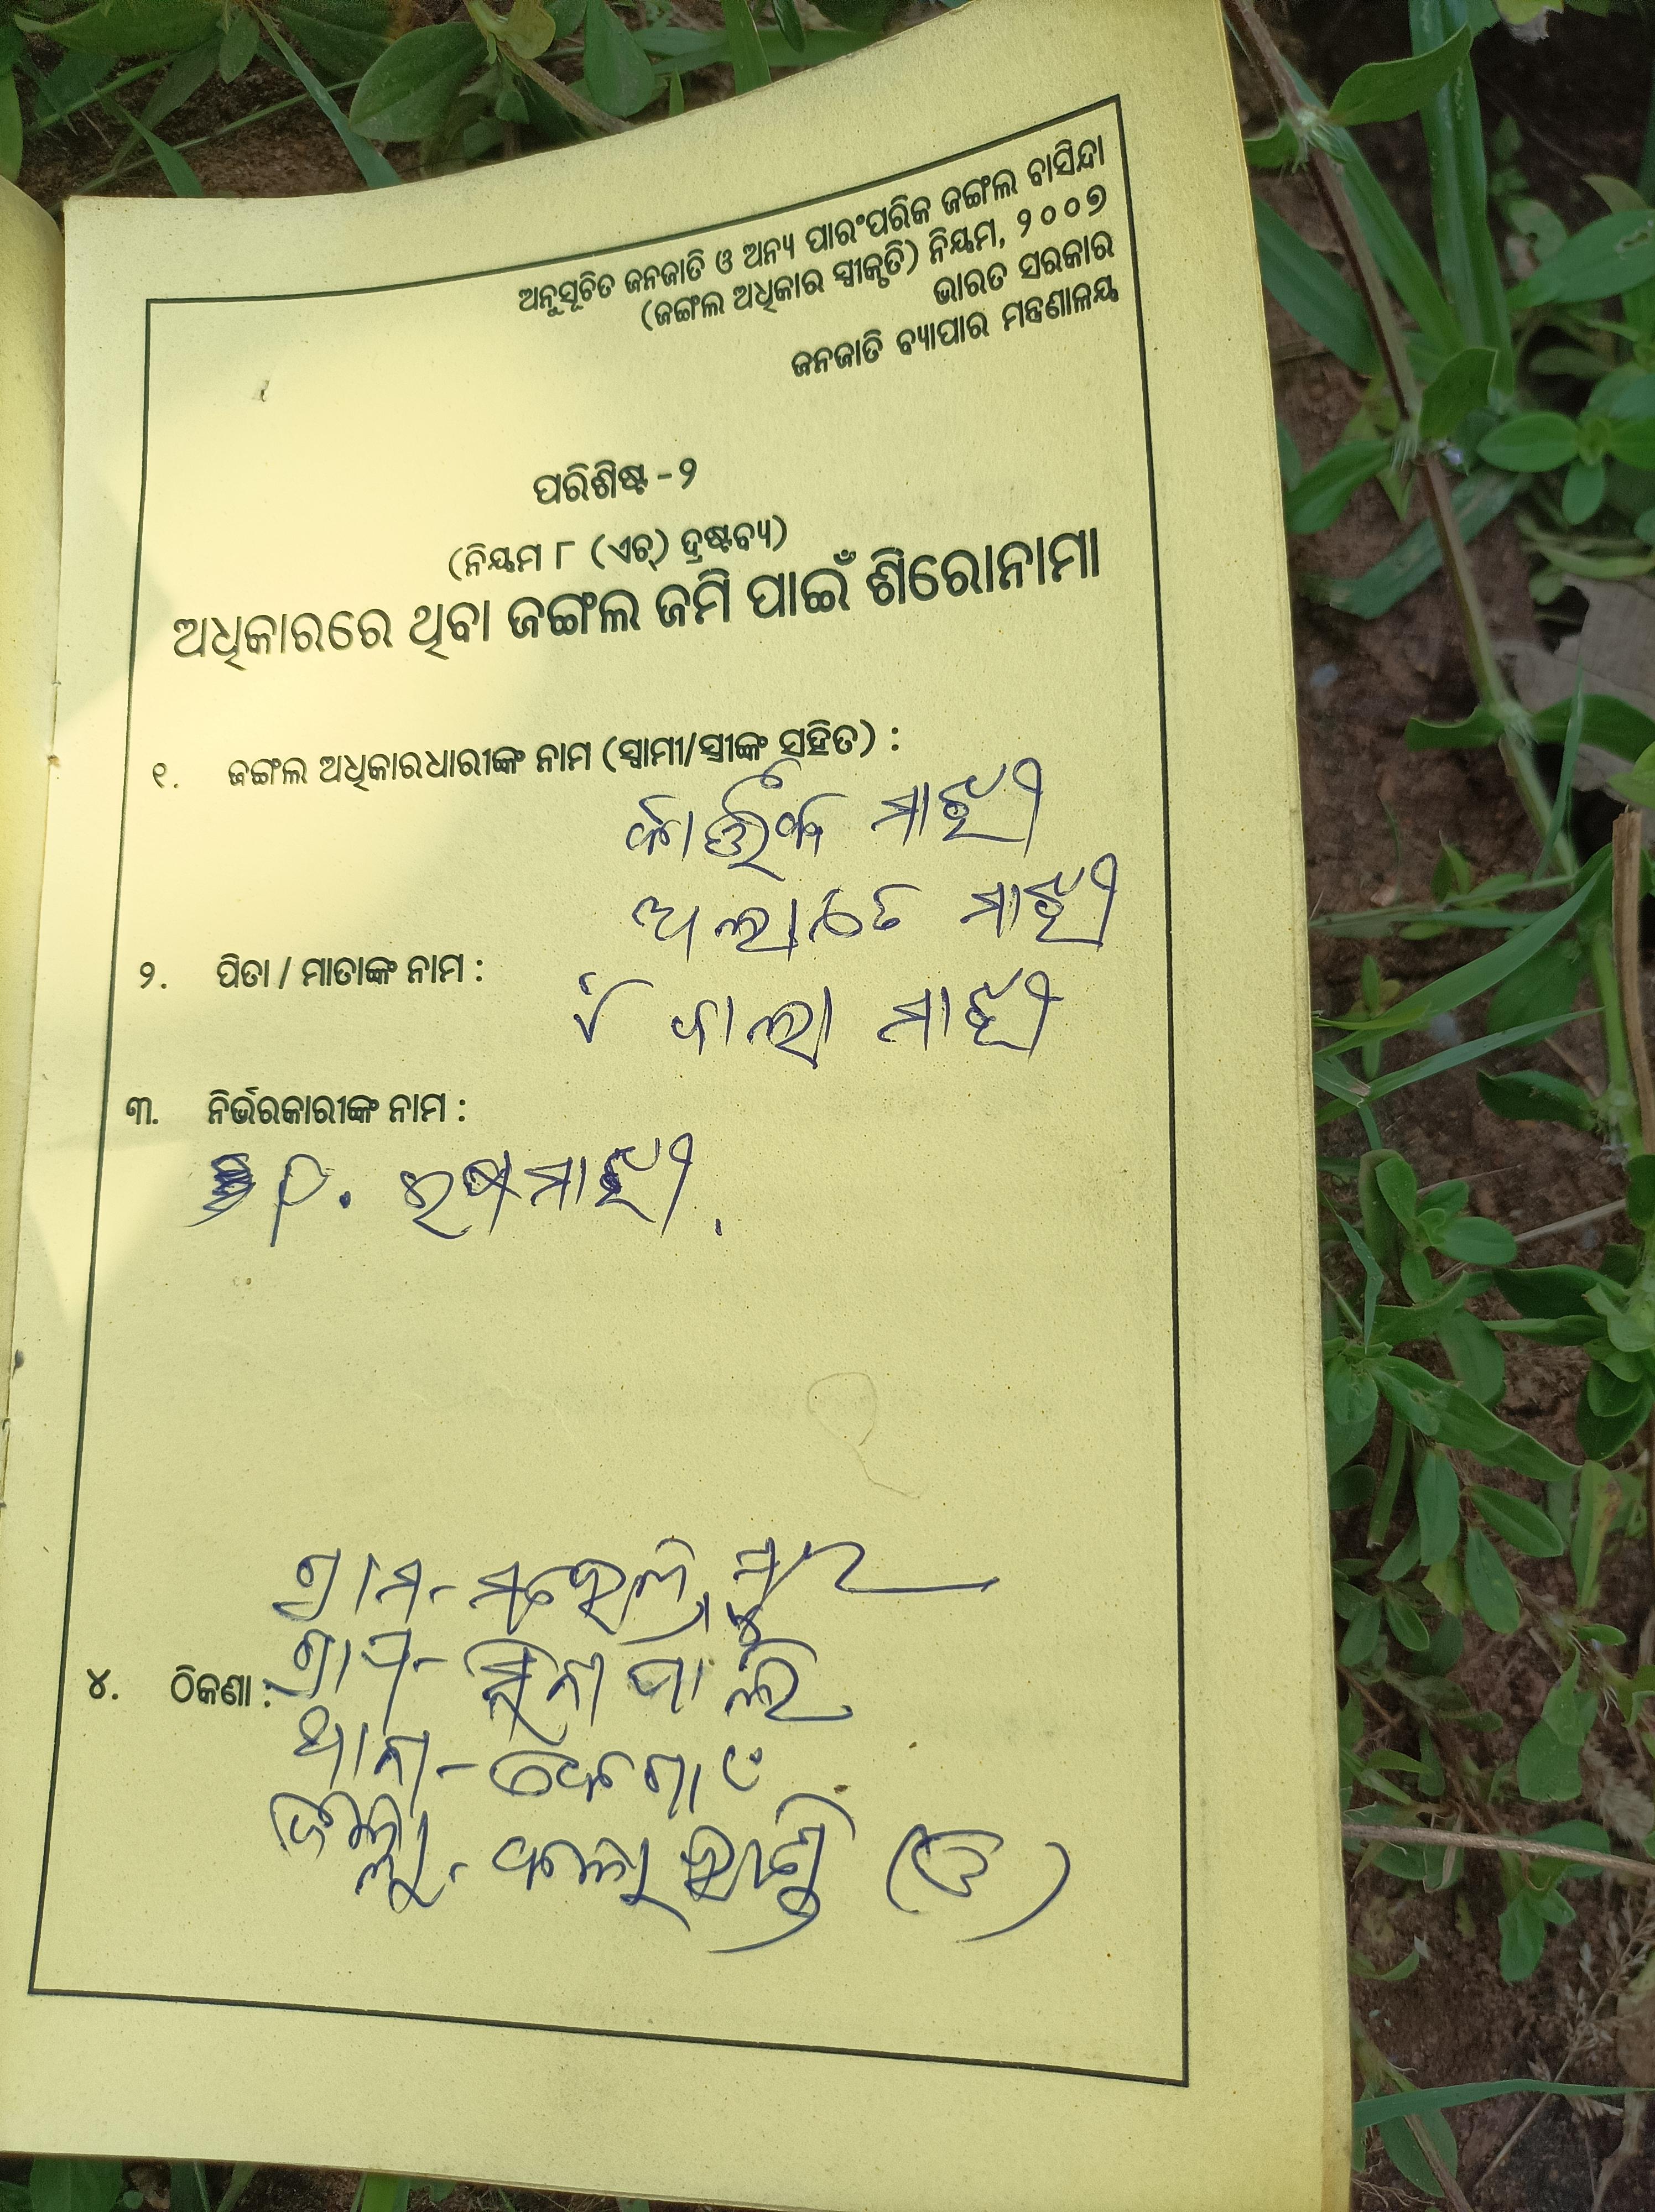 ଅନୁସୂଚିତ ଜନଜାତି ଓ ଅନ୍ୟ ପାରଂପରିକ ଜଙ୍ଗଲ ବାସିନ୍ଦା
(ଜଙ୍ଗଲ ଅଧିକାର ସ୍ୱୀକୃତି) ନିୟମ, ୨୦୦୭
ଭାରତ ସରକାର
ଜନଜାତି ବ୍ୟାପାର ମନ୍ତ୍ରଣାଳୟ
ପରିଶିଷ୍ଟ -୨
(ନିୟମ ୮ (ଏଚ୍) ଦ୍ରଷ୍ଟବ୍ୟ)
ଅଧିକାରରେ ଥିବା ଜଙ୍ଗଲ ଜମି ପାଇଁ ଶିରୋନାମା
୧. ଜଙ୍ଗଲ ଅଧିକାରଧାରୀଙ୍କ ନାମ (ସ୍ୱାମୀ/ସ୍ତ୍ରୀଙ୍କ ସହିତ) :
କାର୍ତ୍ତିକ ମାଝୀ
ମାଝୀ
୨. ପିତା / ମାତାଙ୍କ ନାମ :
ମାଝୀ
୩. ନିର୍ଭରକାରୀଙ୍କ ନାମ :
ମାଝୀ
ଗ୍ରାମ-
୪. ଠିକଣା :
ଥାନା-
ଜିଲ୍ଲା- କଳାହାଣ୍ଡି (ଓ)